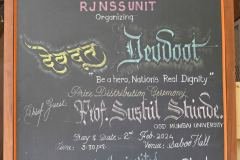 RJNSS UNIT
Organizing
देवदूत Devdoot
"Be a hero, Nation's Real Dignity"
Prize Distribution Ceremony
Chief Guest
Prof. Sushil Shinde.
OSD MUMBAI UNIVERSITY
Day & Date:- 2nd Feb-2024
Time: 3:30pm. Venue:- Saboo Hall